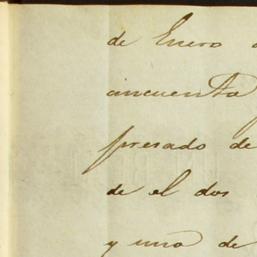 de Enero
cincuenta
presado de
de el dos
y uno de